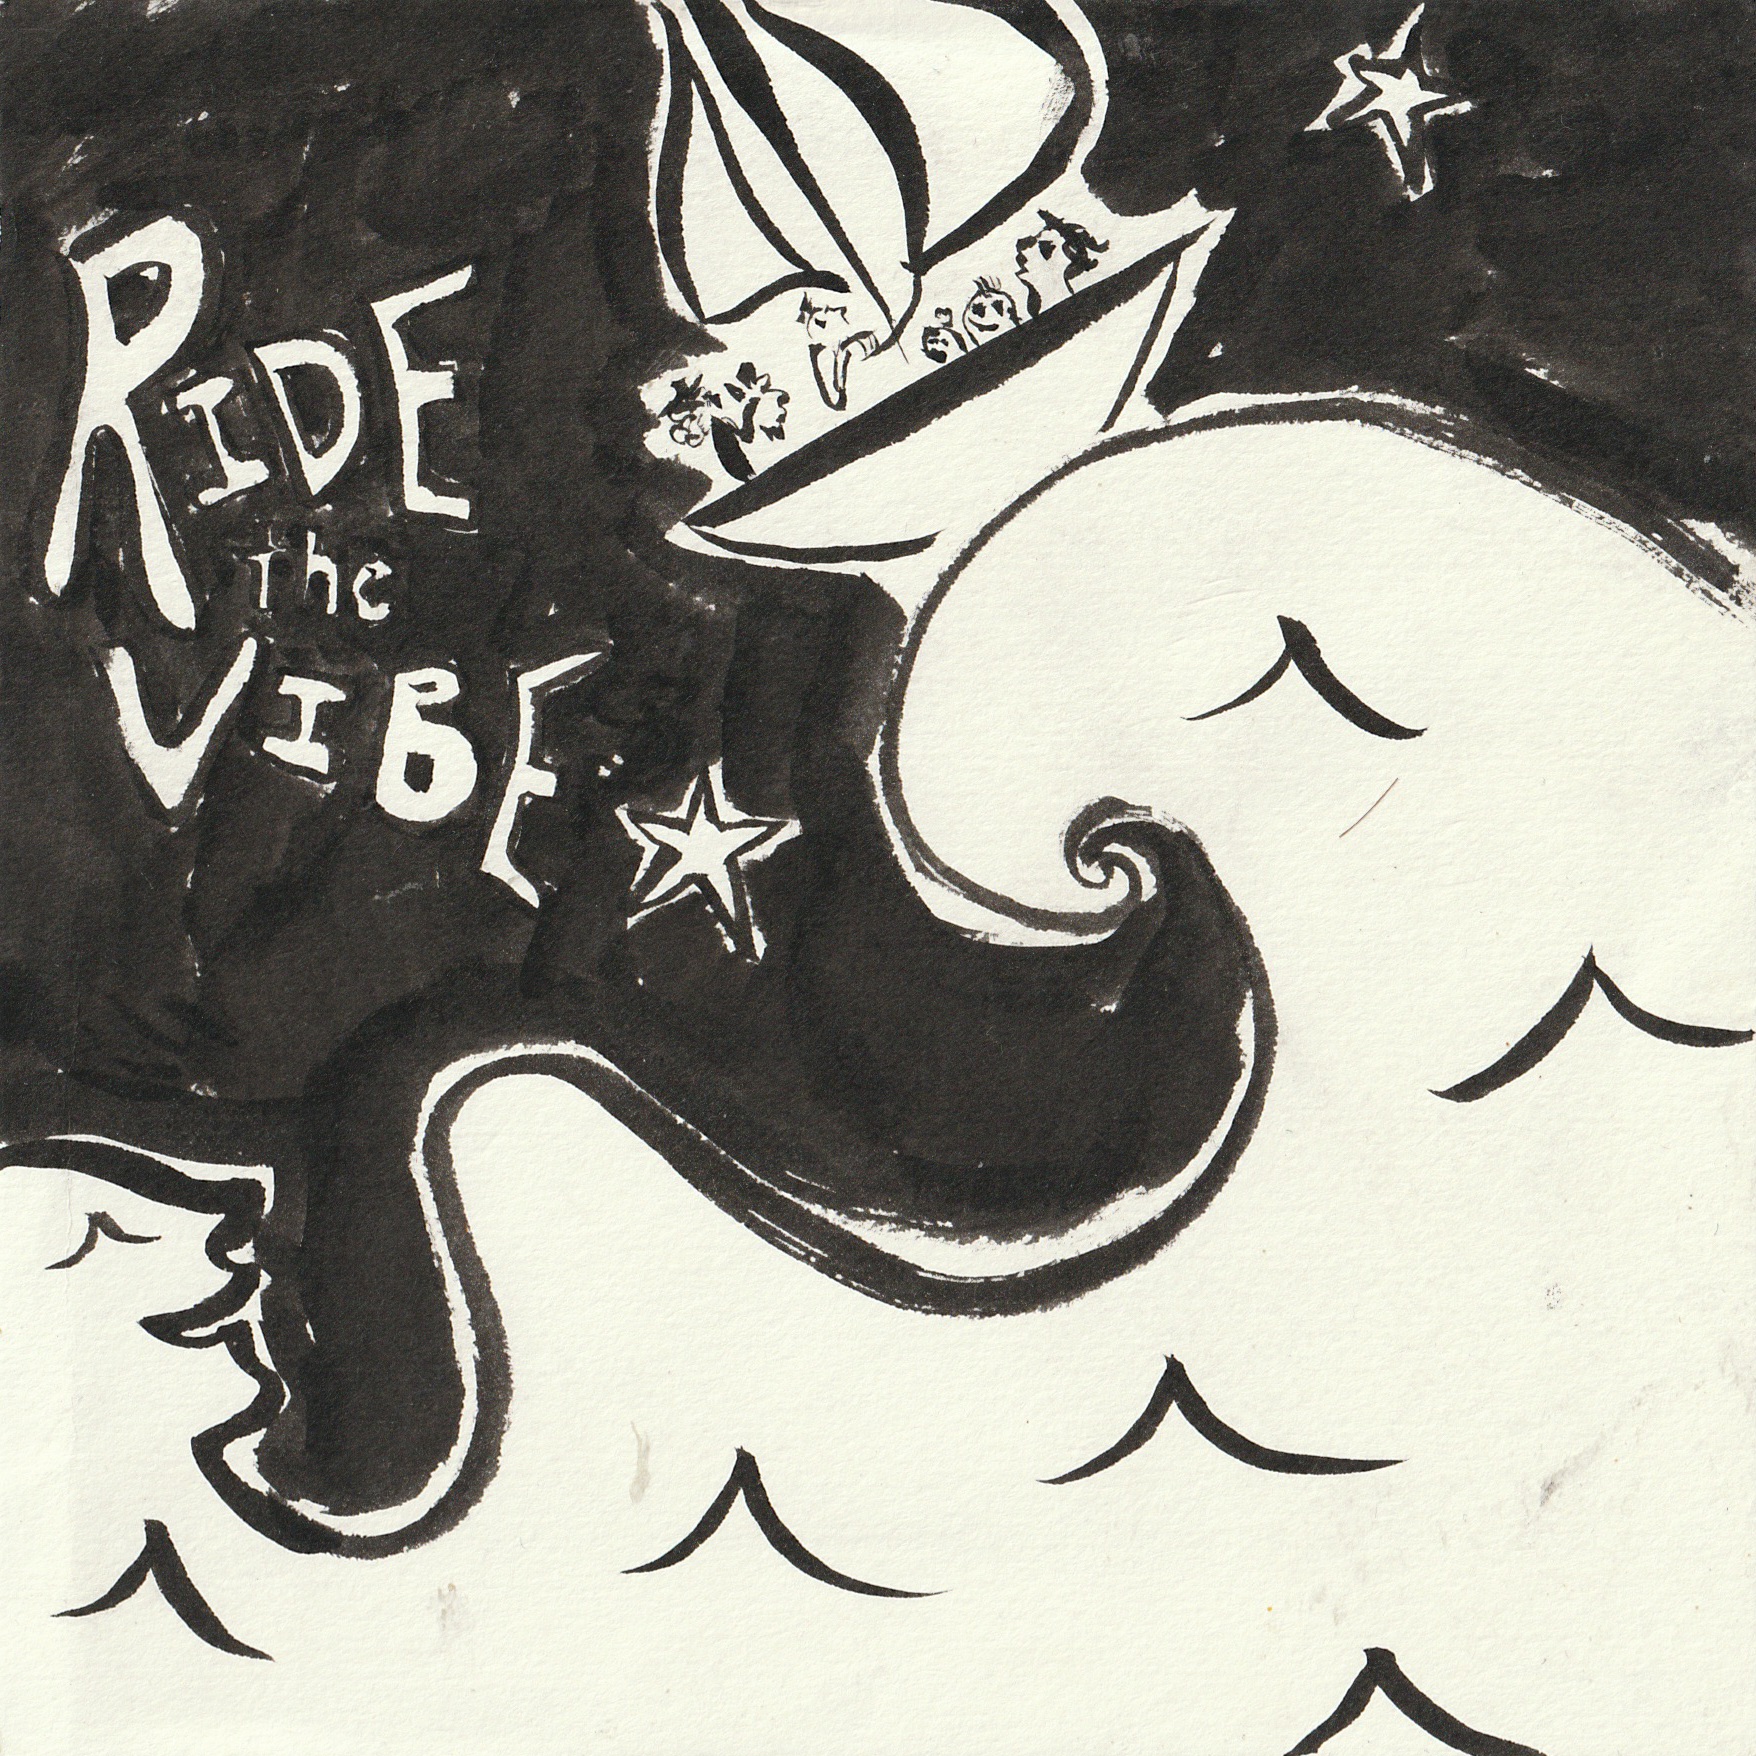 RIDE
the
VIBE